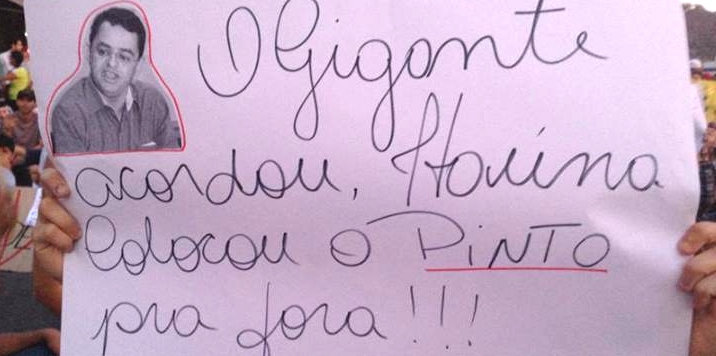 O Gigante
acordou, Itaúna
Colocou o PiNTO
pra fora!!!